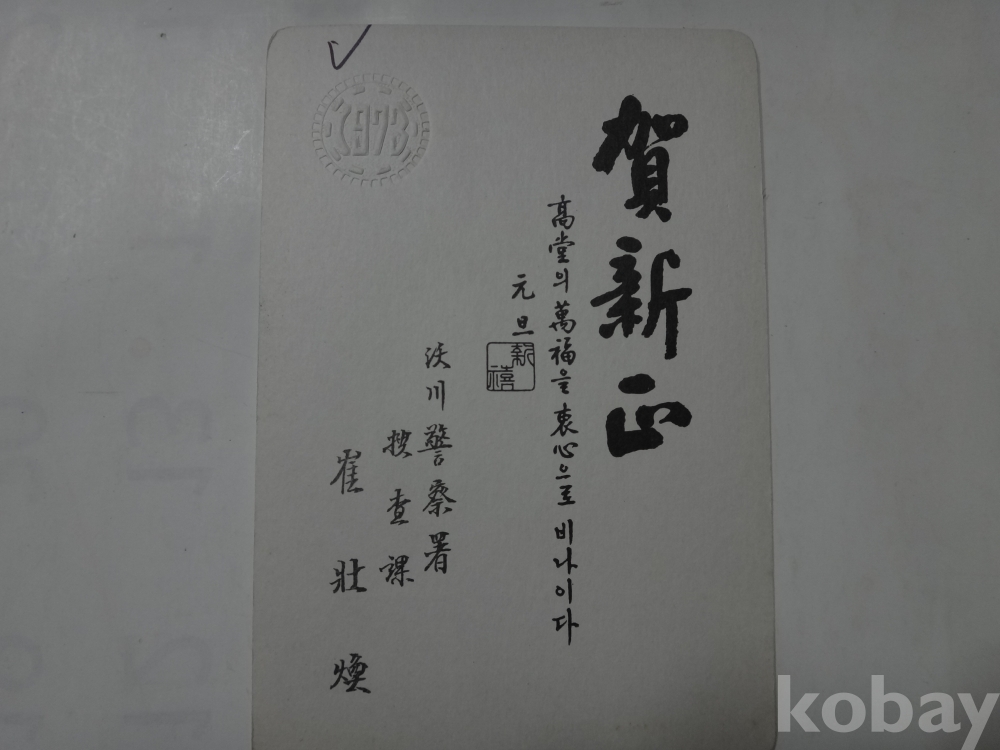 賀新正
高堂의 萬福을 衷心으로 비나이다
元旦
新禧
沃川警察署
搜査課
崔壯煥
1973
kobay